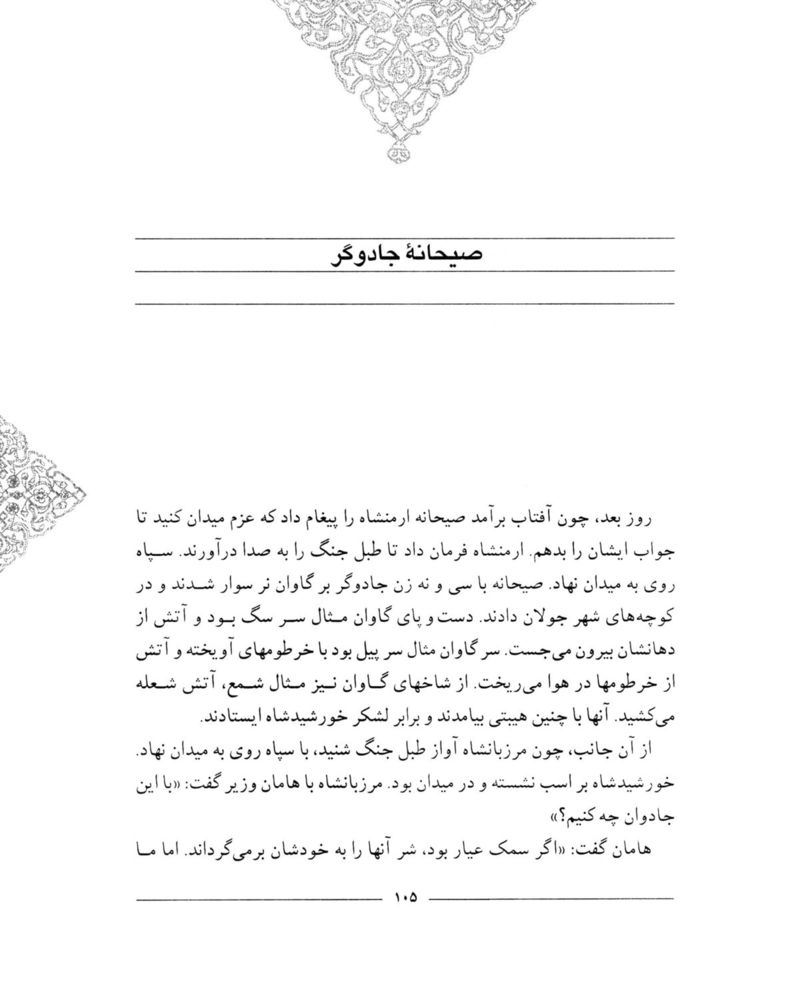 صیحانهٔ جادوگر
روز بعد، چون آفتاب برآمد صیحانه ارمنشاه را پیغام داد که عزم میدان کنید تا
جواب ایشان را بدهم. ارمنشاه فرمان داد تا طبل جنگ را به صدا درآورند. سپاه
روی به میدان نهاد. صیحانه با سی و نه زن جادوگر بر گاوان نر سوار شدند و در
کوچه‌های شهر جولان دادند. دست و پای گاوان مثال سر سگ بود و آتش از
دهانشان بیرون می‌جست. سر گاوان مثال سر پیل بود با خرطومهای آویخته و آتش
از خرطومها در هوا می‌ریخت. از شاخهای گاوان نیز مثال شمع، آتش شعله
می‌کشید. آنها با چنین هیبتی بیامدند و برابر لشکر خورشیدشاه ایستادند.
از آن جانب، چون مرزبانشاه آواز طبل جنگ شنید، با سپاه روی به میدان نهاد.
خورشیدشاه بر اسب نشسته و در میدان بود. مرزبانشاه با هامان وزیر گفت: «با این
جادوان چه کنیم؟»
هامان گفت: «اگر سمک عیار بود، شر آنها را به خودشان برمی‌گرداند. اما ما
۱۰۵